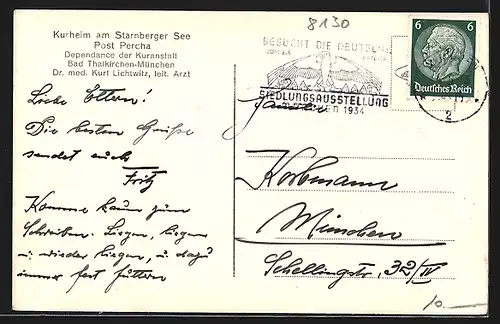 8130
Kurheim am Starnberger See
Post Percha
Dependance der Kuranstalt
Bad Thalkirchen-München
Dr. med. Kurt Lichtwitz, leit. Arzt
BESUCHT DIE DEUTSCHE
SIEDLUNGSAUSSTELLUNG
MÜNCHEN 1934
6 6
Deutsches Reich
2
Liebe Eltern!
Die besten Grüße
sendet euch
Fritz
Komme kaum zum
Schreiben. Liegen, liegen
u. wieder liegen, u. dazu
immer fest füttern
Familie
Korbmann
München
Schellingstr. 32/IV
10.—